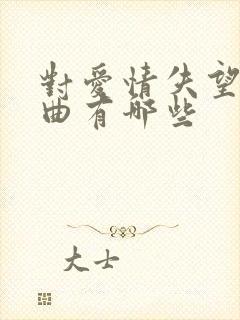 對愛情失望
曲有哪些
大士